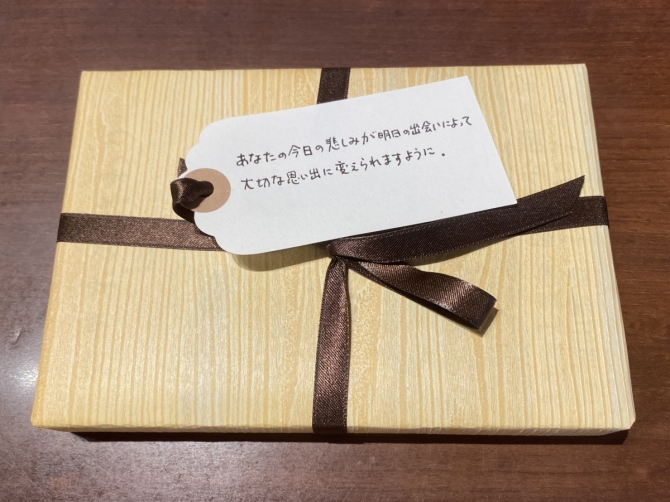 あなたの今日の悲しみが明日の出会いによって
大切な思い出に変えられますように。